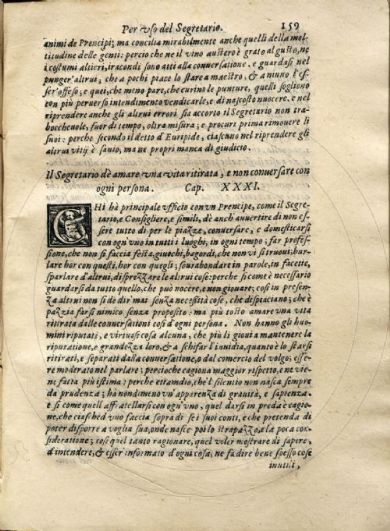 Per vso del Segretario. 159
animi de Prencipi; ma concilia mirabilmente anche quelli della mol-
titudine delle genti: percio che ne il vino austero è grato al gusto, ne
i costumi altieri, iracondi sono atti alla conuersatione. e guardasi nel
punger'altrui, che a pochi piace lo stare a maestro, & a niuno l'es-
ser'offeso, e quei, che meno pare, che curino le punture, quelli sogliono
con più peruerso intendimento vendicarle, e di nascosto nuocere. e nel
riprendere anche gli altrui errori sia accorto il Segretario non tra-
boccheuole, fuor di tempo, oltra misura; e procuri prima rimouere li
suoi: perche secondo il detto d'Euripide, ciascuno nel riprendere gli
altrui vitij è sauio, ma ne proprij manca di giudicio.
Il Segretario dè amare vna vita ritirata, e non conuersare con
ogni persona. Cap. XXXI.
CHi hà principale vfficio con vn Prencipe, come il Segre-
tario, e Consigliere, e simili, dè anch'auertire di non es-
sere tutto dì per le piazze, conuersare, e domesticarsi
con ogn'vno in tutti i luoghi, in ogni tempo; far profes-
sione, che non si faccia festa, giuochi, bagordi, che non vi si troui; bur-
lare hor con questi, hor con quegli; soprabondare in parole, in facetie,
sparlare d'altrui, disprezzare le altrui cose: perche sì come è necessario
guardarsi da tutto quello, che può nocere, e non giouare; così in presen-
za altrui non si dè dir' mai senza necessità cose, che dispiacciano; che è
pazzia farsi nimico senza proposito: ma più tosto amare vna vita
ritirata dalle conuersationi così d'ogni persona. Non hanno gli huo-
mini riputati, e virtuosi cosa alcuna, che più li gioui a mantenere la
riputatione, e grandezza loro, & a schifar l'inuidia, quanto è lo starsi
ritirati, e separati dalla conuersatione, e dal comercio del volgo; esse-
re moderato nel parlare; percioche cagiona maggior rispetto, e ne vie-
ne fatta più istima: perche etiamdio, che'l silentio non nasca sempre
da prudenza; hà nondimeno vn'apparenza di grauità, e sapienza.
e sì come quell'affratellarsi con ogn'vno, quel darsi in preda è cagio-
ne, che ciascheduno faccia sopra di sè i suoi conti, e che pretenda di
poter disporre a voglia sua, onde nasce poi lo strapazzo, e la poca con-
sideratione; così quel tanto ragionare, quel voler mostrare di sapere,
d'intendere, & esser informato d'ogni cosa; ne fà dire bene spesso cose
inutili,